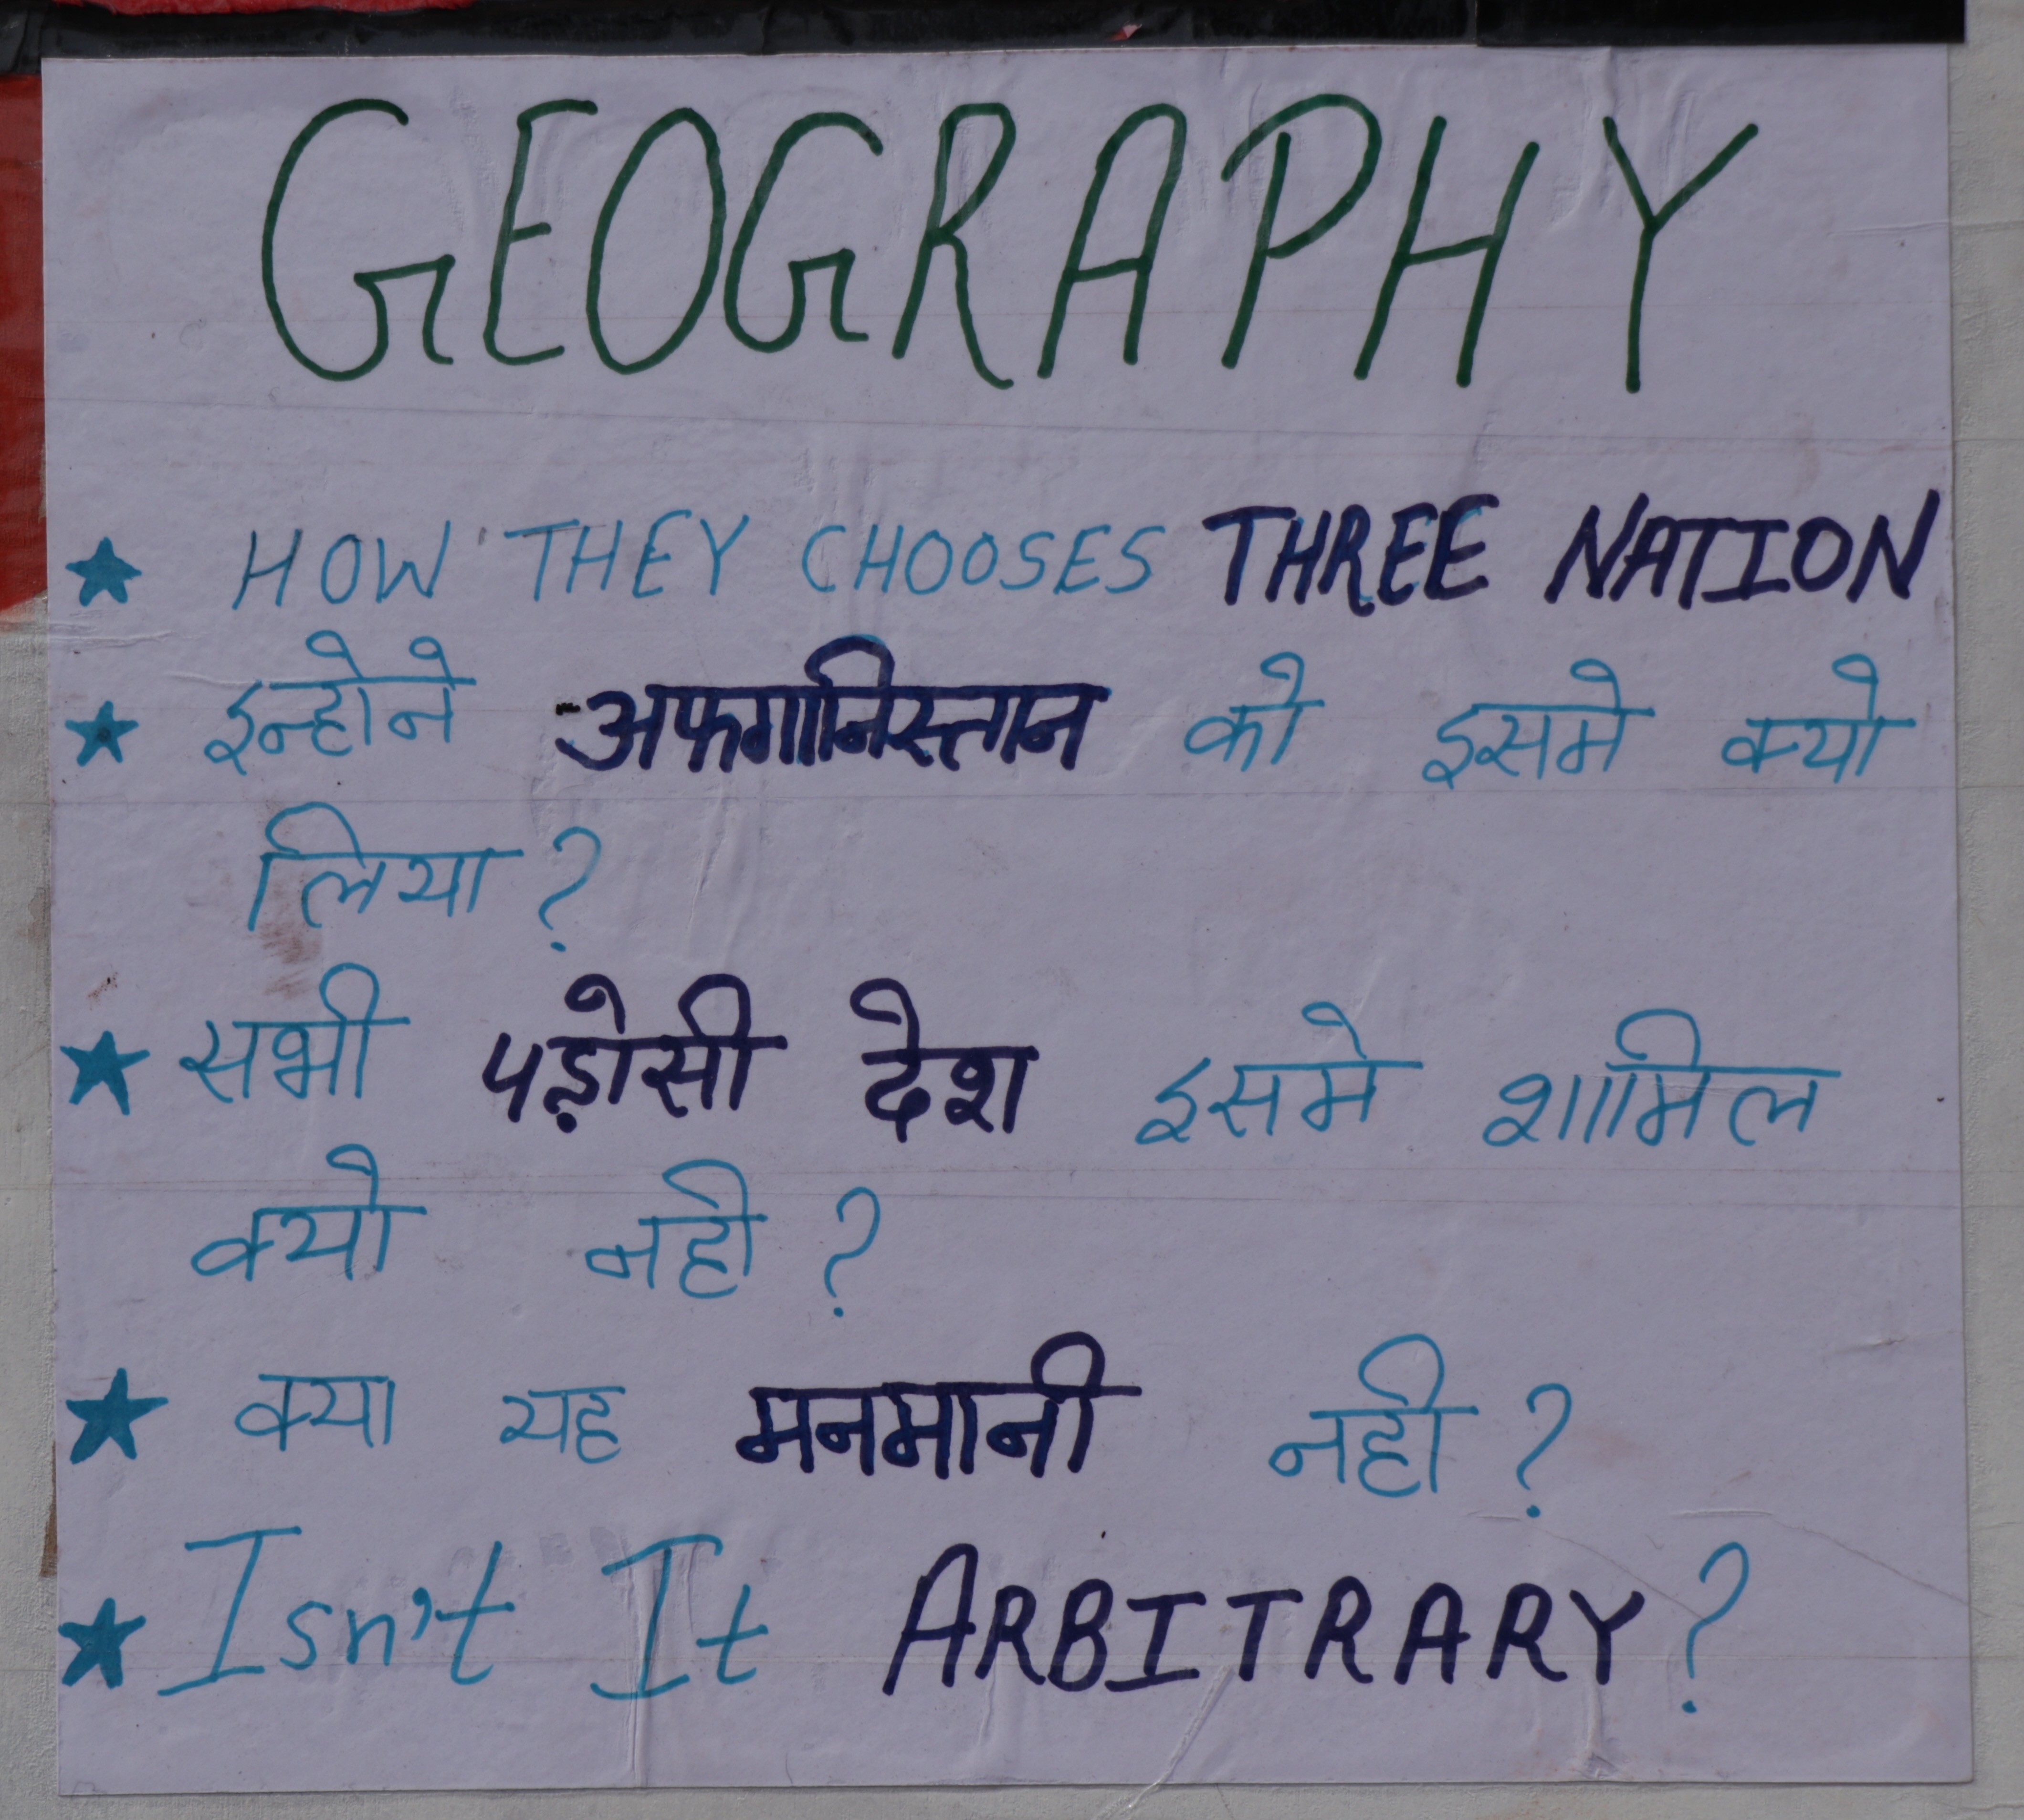 GEOGRAPHY
★ HOW THEY CHOOSES THREE NATION
★ इन्होने अफगानिस्तान को इसमे क्यो
लिया?
★ सभी पड़ोसी देश इसमे शामिल
क्यो नही?
★ क्या यह मनमानी नही?
★ Isn't It ARBITRARY?